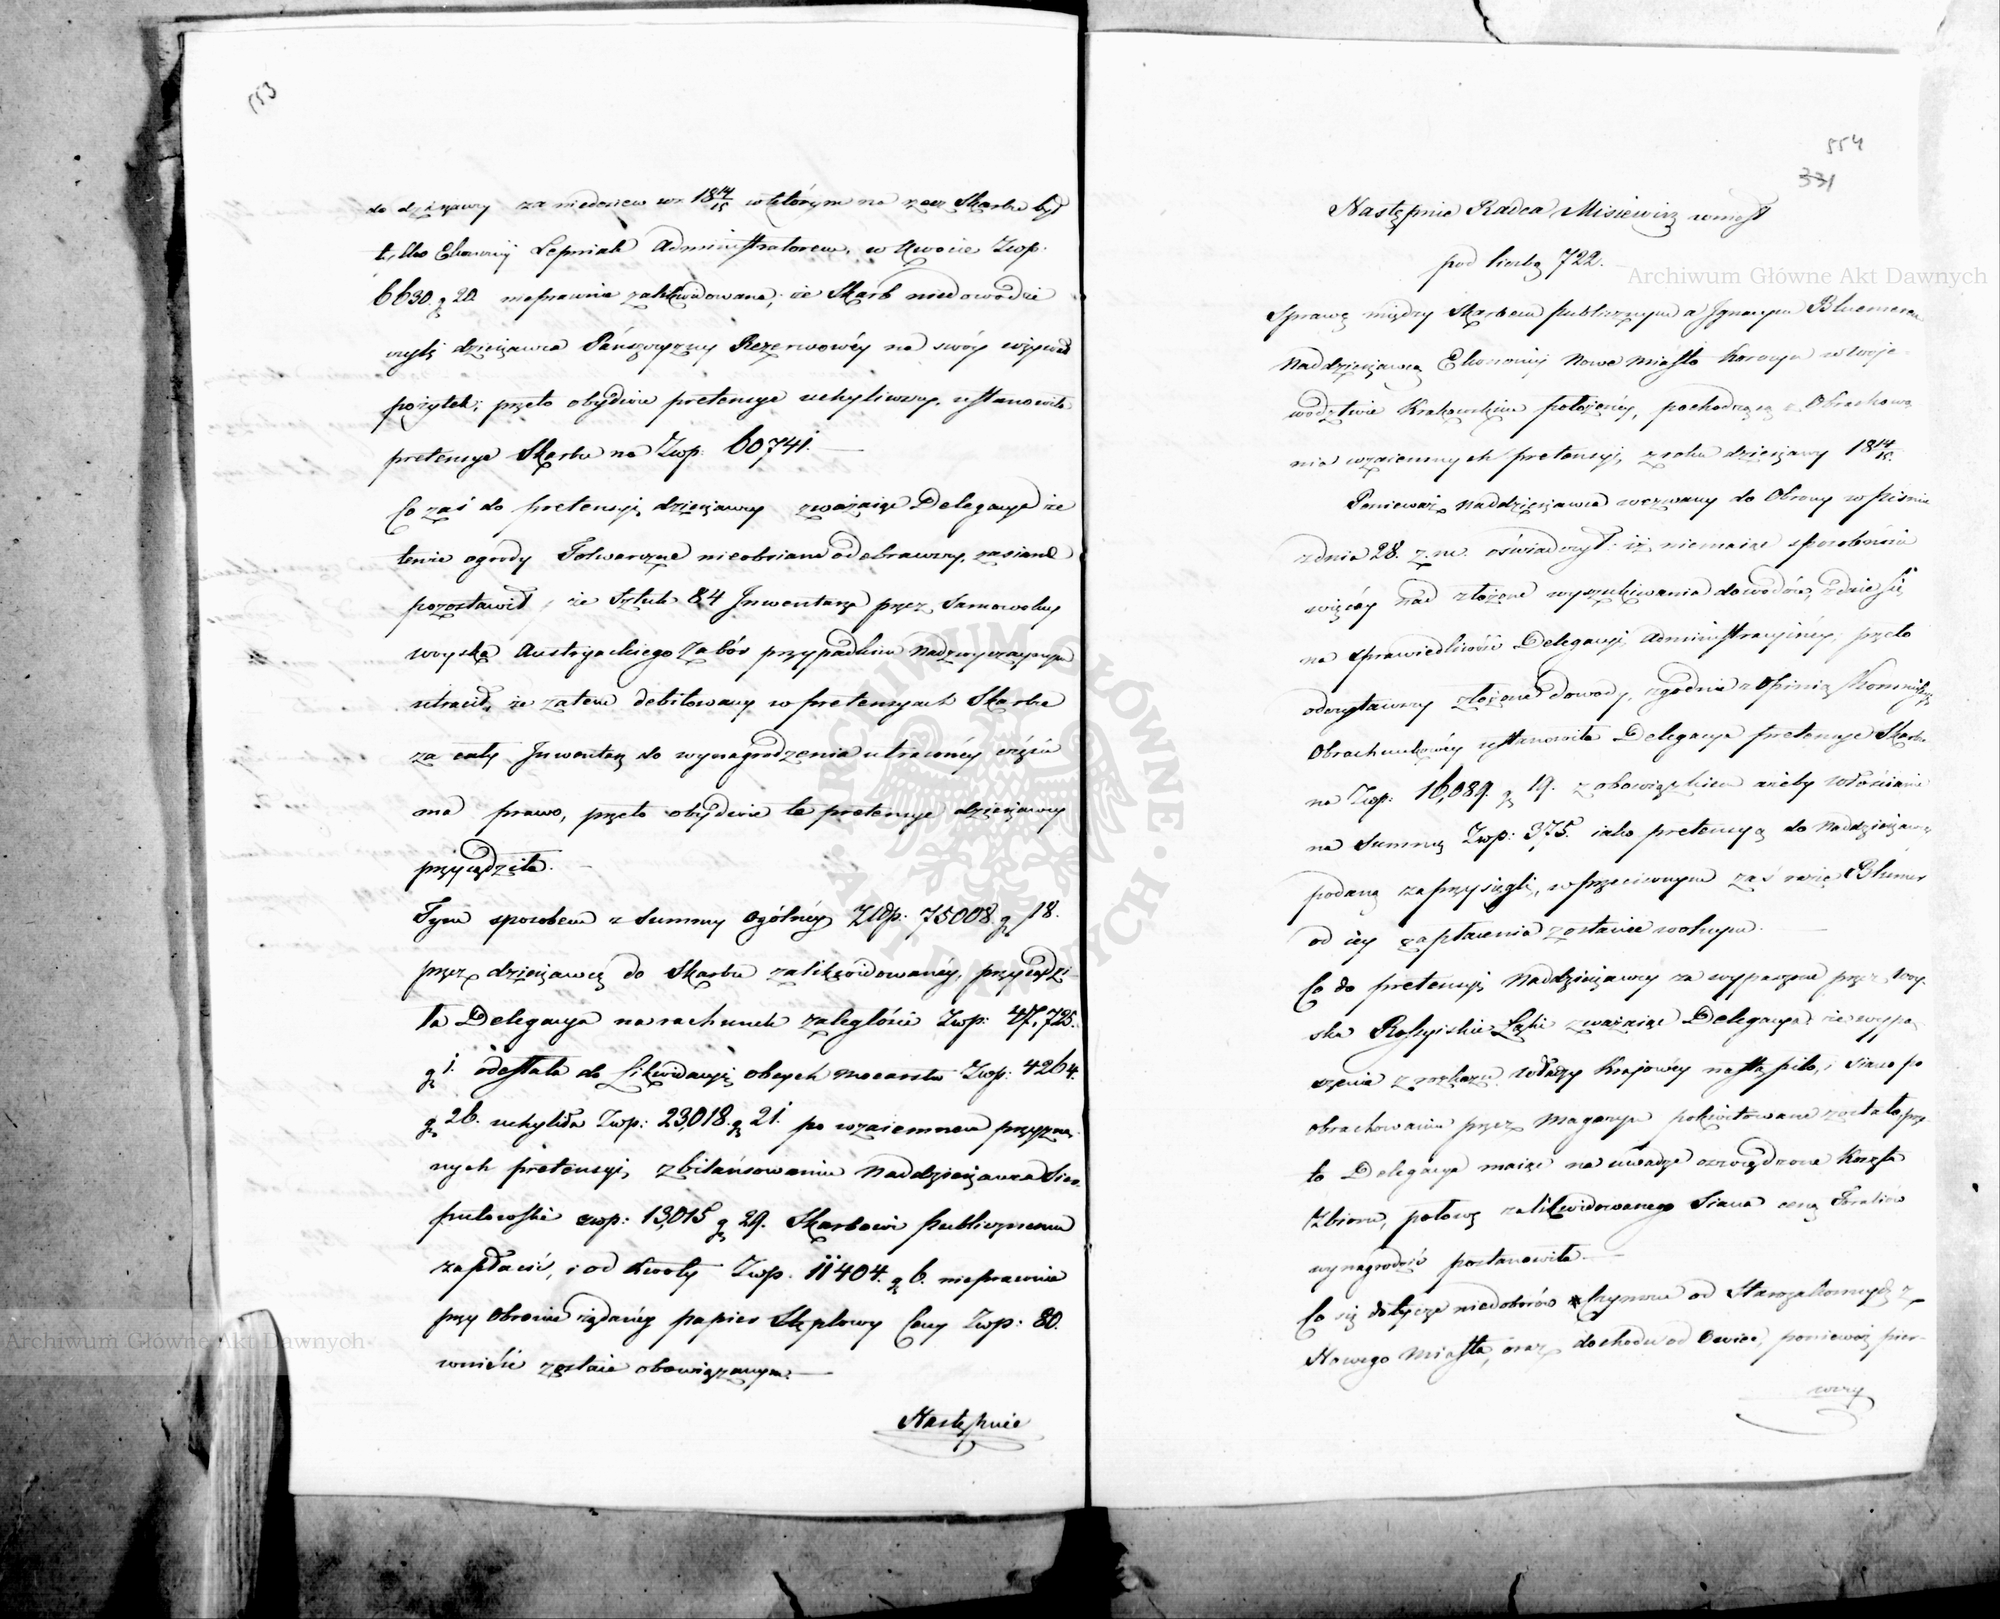 553
do dzierżawy za niedosiew w r. 18 14/15 w którym na rzecz Skarbu był
tylko Ekonomij Administratorem, w kwocie Zwp.
6630. g 20 nieprawnie zalikwidowana; że Skarb niedowodzie
czyli dzierżawca Pańszczyzny Rezerwowéy na swóy używał
pożytek; przeto obydwie pretensye uchyliwszy, ustanowiła
pretensye Skarbu na Zwp. 60741.—
Co zaś do pretensyi dzierżawcy zważaiąc Delegacya że
tenże ogrody Folwarczne nieobsiane odebrawszy, zasiane
pozostawił, że Sztuk 84 Inwentarza przez samowolny
woyska Austryackiego zabór przypadkiem nadzwyczaynym
utracił, że zatem debitowany w pretensyach Skarbu
za cały Inwentarz do wynagrodzenia utraconéy części
ma prawo, przeto obydwie te pretensye dzierżawcy
przysądziła.—
Tym sposobem z Summy ogólnéy Zwp. 75008 g 18.
przez dzierżawcę do Skarbu zalikwidowanéy, przysądzi-
ła Delegacya na rachunek zaległości Zwp: 47,725.
g 1. odesłała do Likwidacyi obcych mocarstw Zwp: 4264.
g 26. uchyliła Zwp: 23,018. g 21. po wzaiemnem przyzna-
nych pretensyi, zbilansowaniu Naddzierżawca
zwp: 13,015 g 29. Skarbowi publicznemu
zapłacić, i od kwoty Zwp. 11404. g 6. nieprawnie
przy obronie żądanéy papier Stęplowy Ceny Zwp: 80.
wnieść zostaie obowiązanym.—
Następnie
554
331
Następnie Radca Misiewicz wniosł
pod liczbą 722.
Sprawę między Skarbem publicznym a Ignacym Bluemerem
Naddzierżawcą Ekonomij Nowe Miasto Korczyn w Woje-
wództwie Krakowskim położonéy, pochodzącą z Obrachowa-
nia wzaiemnych pretensyi, z roku dzierżawy 18 14/15.
Ponieważ Naddzierżawca wezwany do Obrony w piśmie
z dnia 28. z. m. oświadczył iż niemaiąc sposobności
więcéy nad złożone wyszukiwania dowodów, zdaie się
na sprawiedliwość Delegacyi Administracyinéy, przeto
odczytawszy złożone dowody, zgodnie z Opinią Kommissyi
Obrachunkowéy ustanowiła Delegacya pretensye Skarbu
na Zwp: 16,089. g 19. z obowiązkiem ażeby Włościanie
na Summę Zwp: 375. iako pretensyą do Naddzierżawcy
podaną zaprzysięgli, w przeciwnym zaś razie Blumer
od iey zapłacenia zostanie wolnym.—
Co do pretensyi Naddzierżawcy za wypaszone przez Woy-
ska Rossyiskie Łąki zważaiąc Delegacya że wypa-
szenie z rozkazu Władzy Kraiowéy nastąpiło, i siano po
obrachowaniu przez Magazyn pokwitowane zostało, prze-
to Delegacya maiąc na uwadze oszczędzone Koszta
Zbioru, połowę zalikwidowanego Siana ceną Foraliów
wynagrodzić postanowiła.—
Co się dotycze niedoborów Czynszu od Starozakonnych z
Nowego Miasta, oraz dochodu od Owiec, ponieważ pier-
wszy
Archiwum Główne Akt Dawnych
Archiwum Główne Akt Dawnych
ARCHIWUM GŁÓWNE · AKT DAWNYCH ·